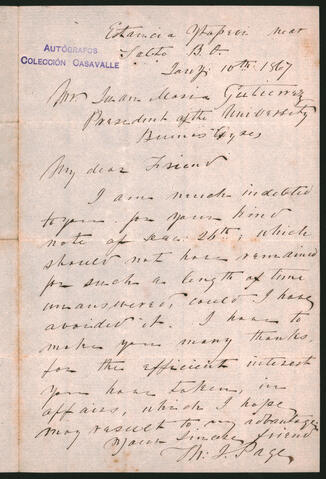 Estancia Ytapevi near
Salto B.O.
Jany. 10th 1867
AUTÓGRAFOS
COLECCIÓN CASAVALLE
Mr. Juan Maria Gutierrez
President of the University
Buenos Ayres
My dear Friend
I am much indebted
to you for your kind
note of Dec. 26th; which
should not have remained
for such a length of time
unanswered, could I have
avoided it. I have to
make you many thanks,
for the efficient interest
you have taken, in
affairs, which I hope
may result to my advantage
Your sincere friend
Th: J. Page